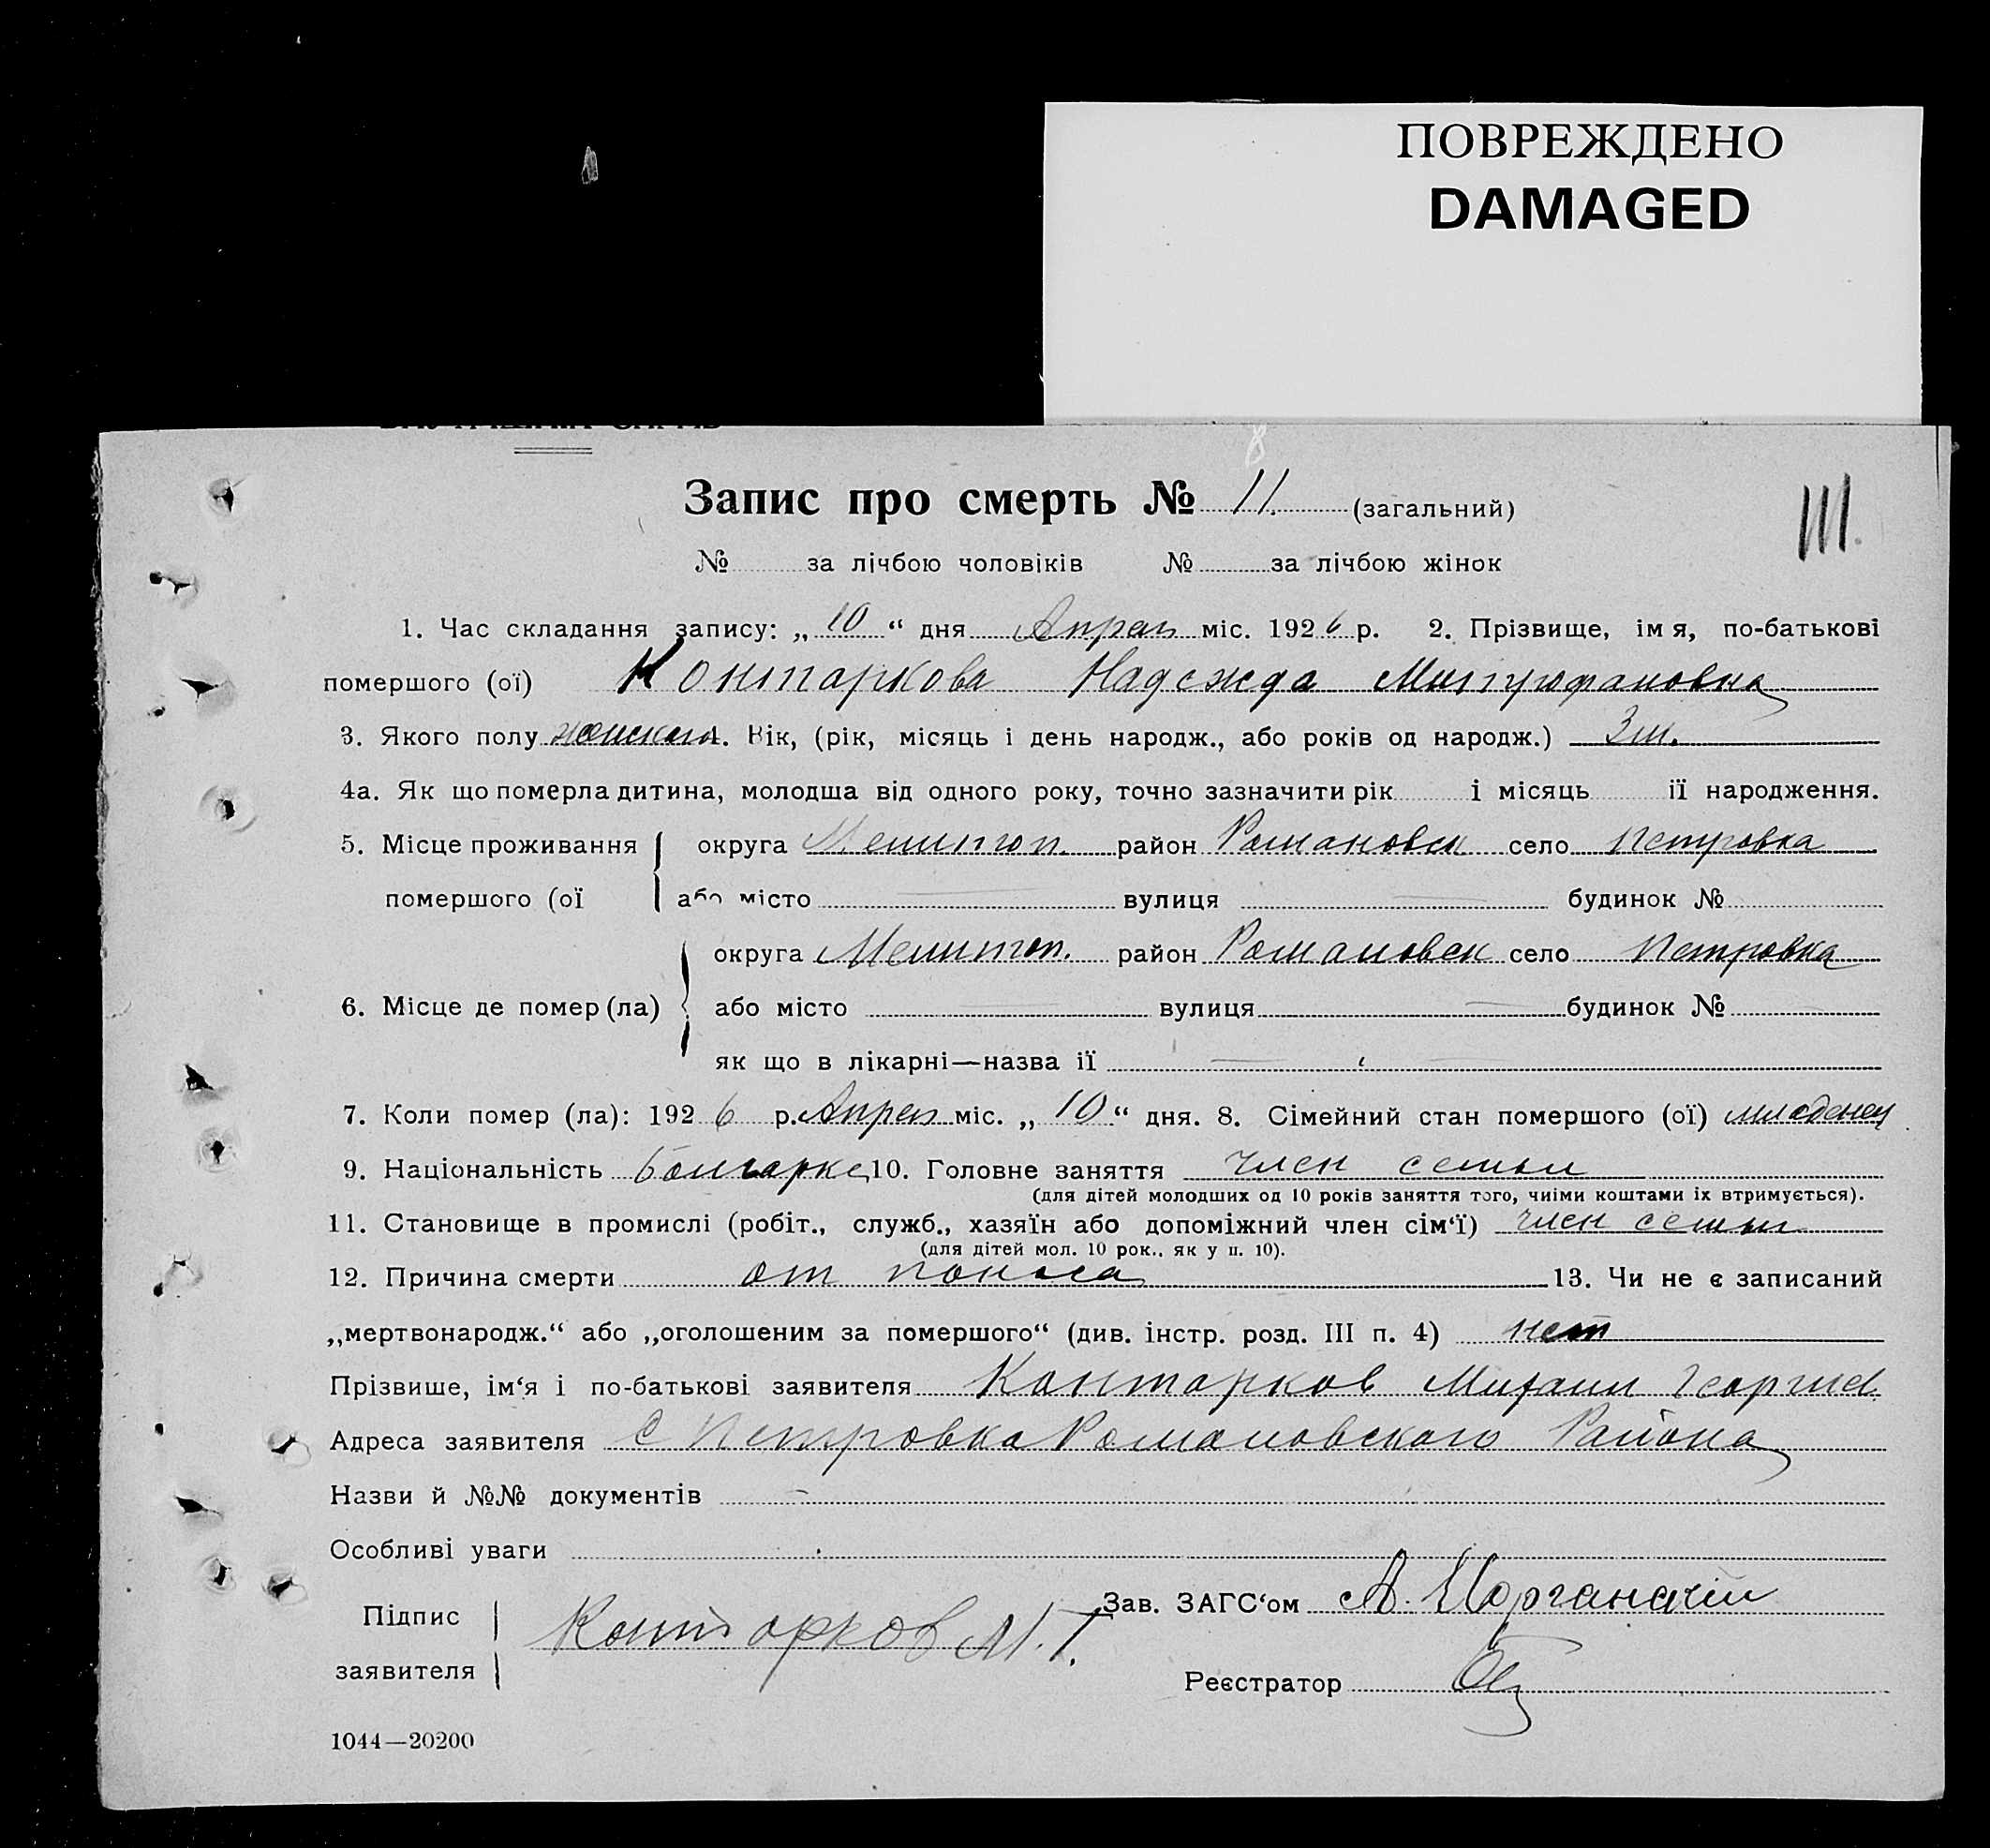 ПОВРЕЖДЕНО
DAMAGED
Запис про смерть № 11. (загальний)
III.
№ за лічбою чоловіків № за лічбою жінок
1. Час складання запису: „ 10 “ дня Апрел міс. 1926 р. 2. Прізвище, ім я, по-батькові
помершого (ої) Контаркова Надежда Митрофановна
3. Якого полу женскага. Вік, (рік, місяць і день народж., або років од народж.) 3 м.
4а. Як що померла дитина, молодша від одного року, точно зазначити рік і місяць її народження.
5. Місце проживання округа Мелитоп. район Романовск село Петровка
помершого (ої або місто вулиця будинок №
округа Мелитоп. район Романовск село Петровка
6. Місце де помер (ла) або місто вулиця будинок №
як що в лікарні—назва її
7. Коли помер (ла): 1926 р. Апрел міс. „ 10 “ дня. 8. Сімейний стан помершого (ої) младенец
9. Національність болгарка 10. Головне заняття член семьи
(для дітей молодших од 10 років заняття того, чиїми коштами їх втримується).
11. Становище в промислі (робіт., служб., хазяїн або допоміжний член сім‘ї) член семьи
(для дітей мол. 10 рок., як у п. 10).
12. Причина смерти от поноса 13. Чи не є записаний
„мертвонародж.“ або „оголошеним за помершого“ (див. інстр. розд. III п. 4) нет
Прізвише, ім‘я і по-батькові заявителя Контарков Михаил Георгиев.
Адреса заявителя с Петровка Романовского Района
Назви й №№ документів
Особливі уваги
Підпис заявителя Контарков М. Г.
Зав. ЗАГС‘ом А.
Реєстратор
1044—20200